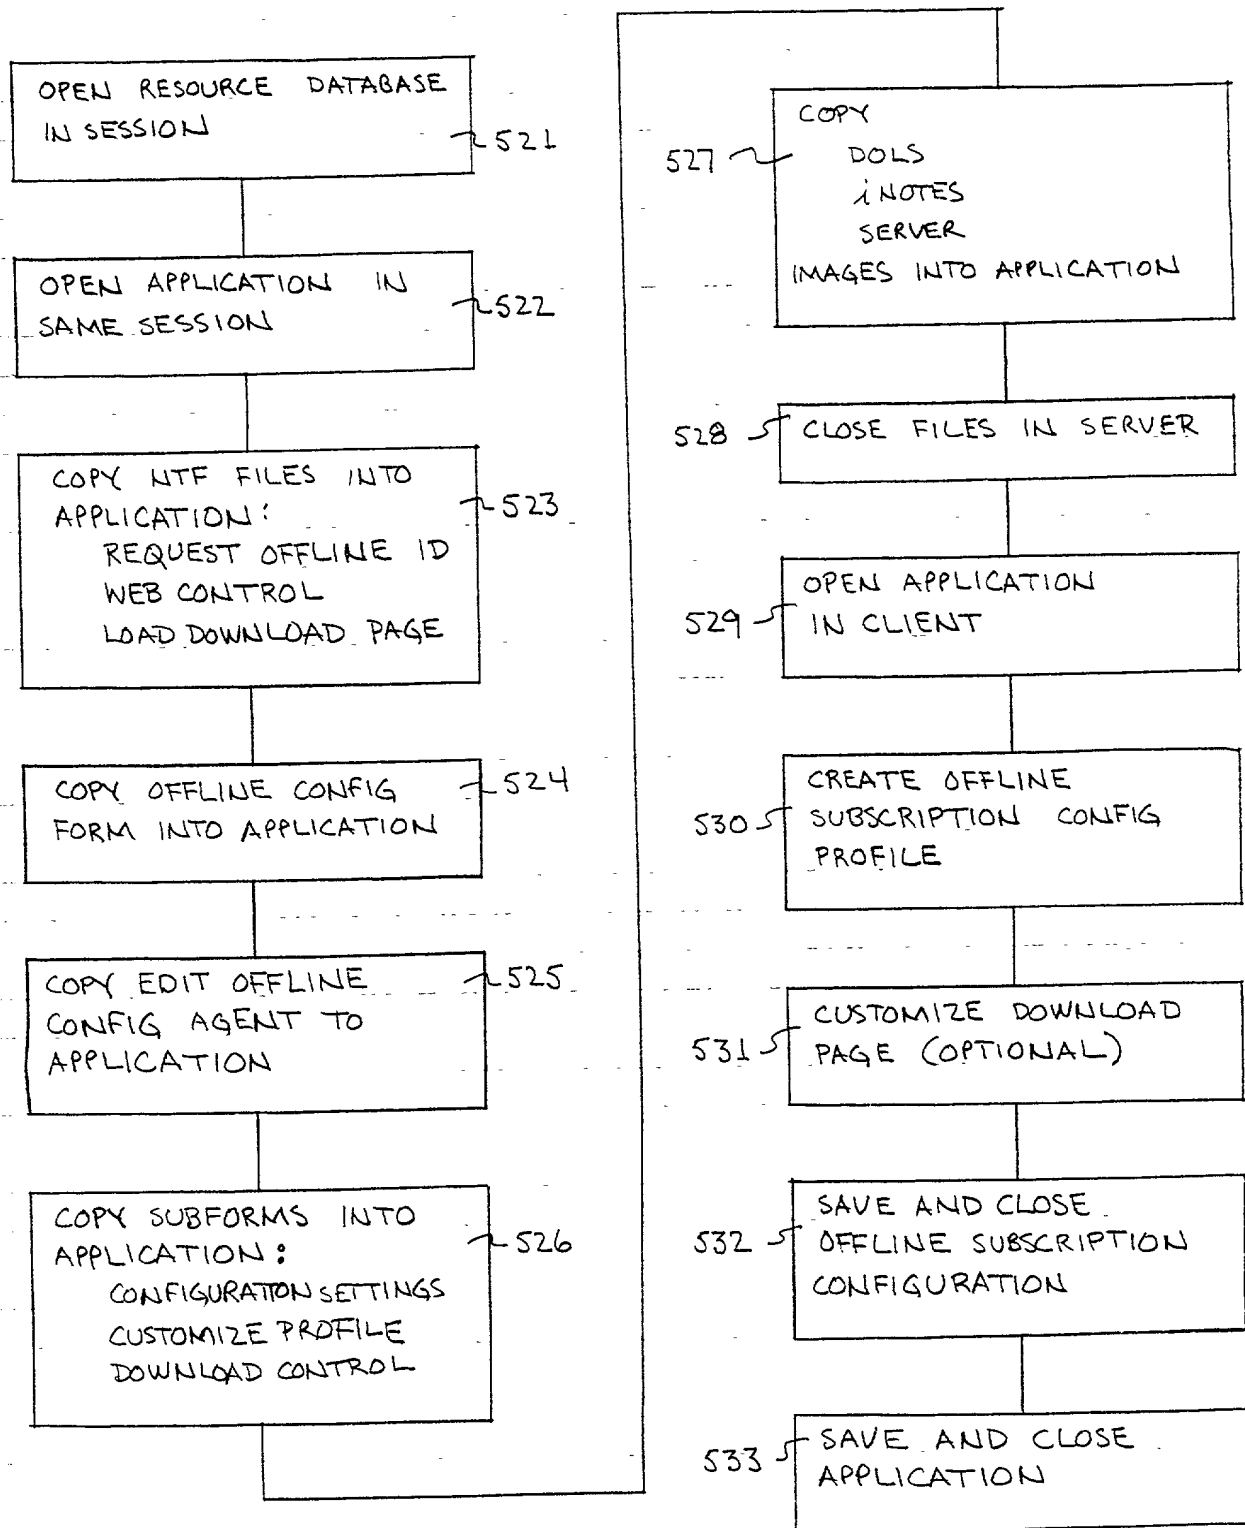 OPEN RESOURCE DATABASE
IN SESSION
521
OPEN APPLICATION IN
SAME SESSION
522
COPY NTF FILES INTO
APPLICATION:
523
REQUEST OFFLINE ID
WEB CONTROL
LOAD DOWNLOAD PAGE
COPY OFFLINE CONFIG
FORM INTO APPLICATION
524
COPY EDIT OFFLINE
CONFIG AGENT TO
APPLICATION
525
COPY SUBFORMS INTO
APPLICATION:
526
CONFIGURATION SETTINGS
CUSTOMIZE PROFILE
DOWNLOAD CONTROL
COPY
527
DOLS
iNOTES
SERVER
IMAGES INTO APPLICATION
528
CLOSE FILES IN SERVER
OPEN APPLICATION
529
IN CLIENT
CREATE OFFLINE
530
SUBSCRIPTION CONFIG
PROFILE
CUSTOMIZE DOWNLOAD
531
PAGE (OPTIONAL)
SAVE AND CLOSE
532
OFFLINE SUBSCRIPTION
CONFIGURATION
533
SAVE AND CLOSE
APPLICATION